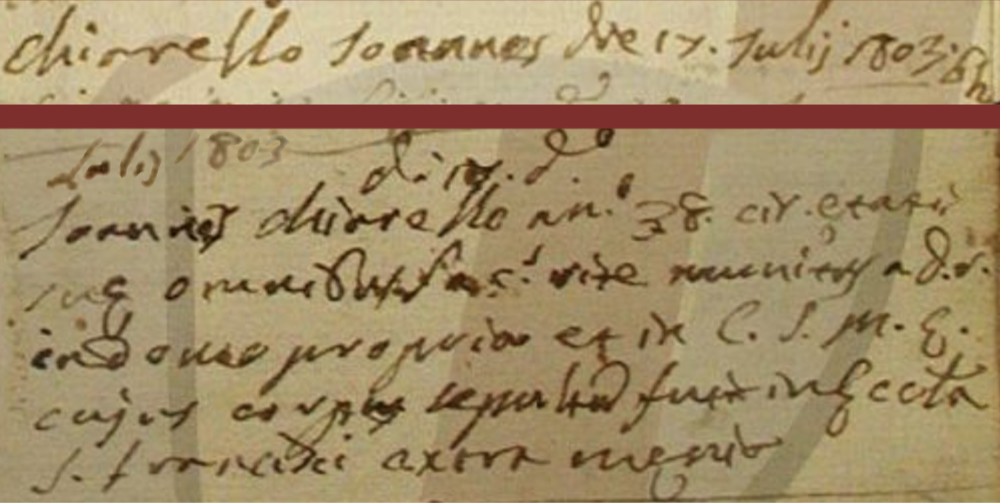 chiarello Joannes die 17. Julij 1803.
Julij 1803
die 17. d.º
Joannes chiarello an. 38. cir. etatis
sue omnibus sac. rite munitus a d. v.
in domo propria et in C. S. M. E.
cujus corpus sepultum fuit in Eccla
S. Francisci extra menia